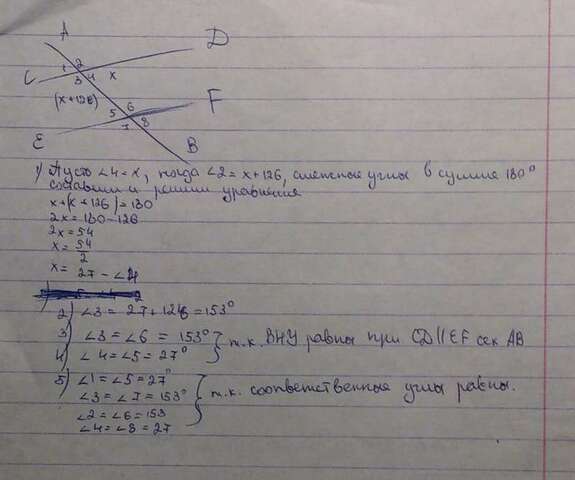 A
D
1 2
C
3 4 x
(x+126)
5 6
F
7 8
E
B
1) Пусть ∠4=x, тогда ∠2=x+126, смежные углы в сумме 180°
составим и решим уравнение
x+(x+126)=180
2x=180-126
2x=54
x=54/2
x=27-∠4
2) ∠3=27+126=153°
3) ∠3=∠6=153°
4) ∠4=∠5=27°
т.к. ВНУ равны при CD||EF сек AB
5) ∠1=∠5=27°
∠3=∠7=153°
∠2=∠6=153
∠4=∠8=27
т.к. соответственные углы равны.